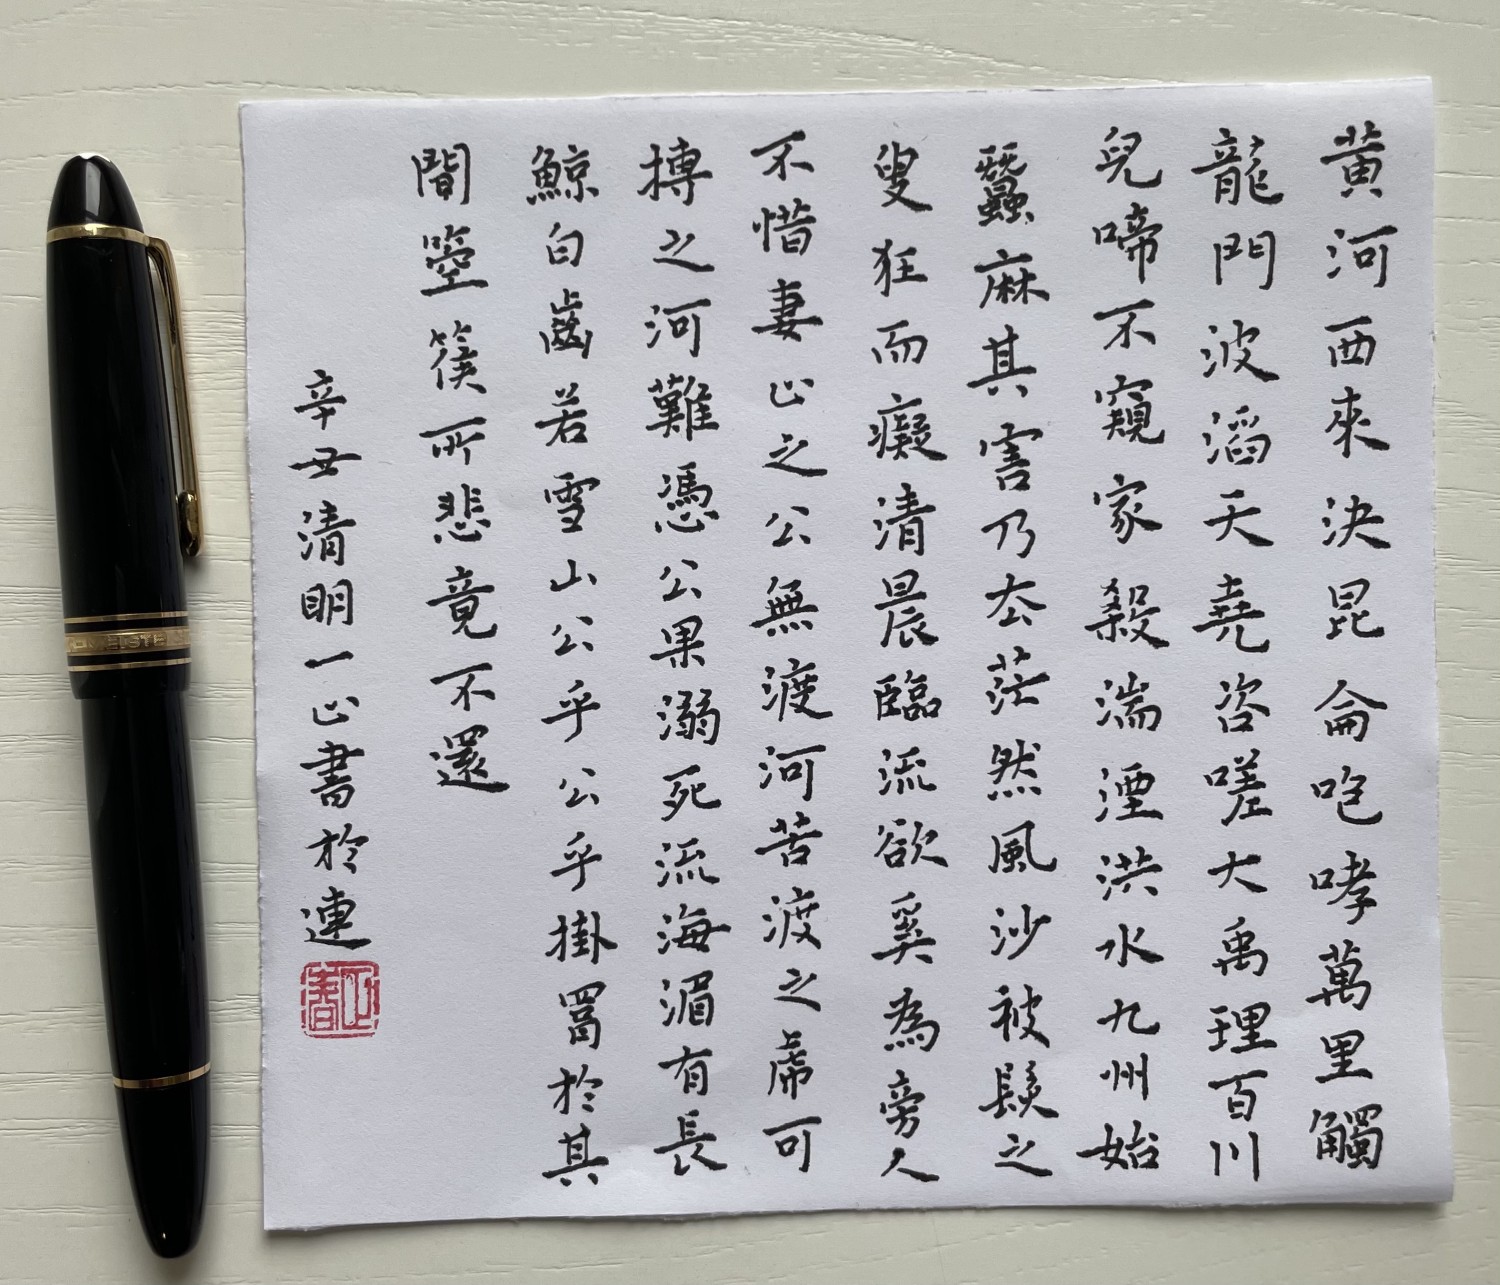 黃河西來決昆侖咆哮萬里觸
龍門波滔天堯咨嗟大禹理百川
兒啼不窺家殺湍湮洪水九州始
蠶麻其害乃去茫然風沙被髮之
叟狂而癡清晨臨流欲奚為旁人
不惜妻止之公無渡河苦渡之虎可
搏之河難憑公果溺死流海湄有長
鯨白齒若雪山公乎公乎掛罥於其
間箜篌所悲竟不還
辛丑清明一止書於連